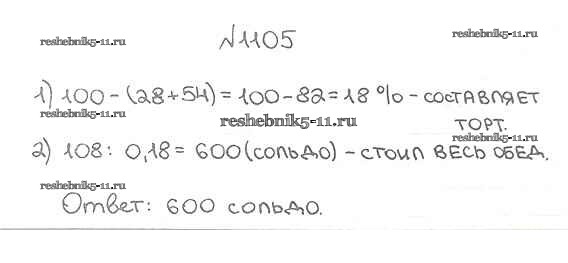 reshebnik5-11.ru
№1105
reshebnik5-11.ru
1) 100-(28+54)=100-82=18 %-составляет
reshebnik5-11.ru
reshebnik5-11.ru
торт.
2) 108: 0,18= 600(сольдо)-стоил весь обед.
reshebnik5-11.ru
Ответ: 600 сольдо.